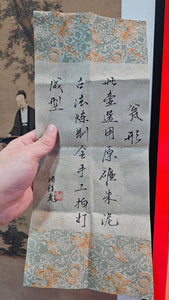 瓮形
此壺選用原礦朱泥
古法煉制全手工拍打
成型